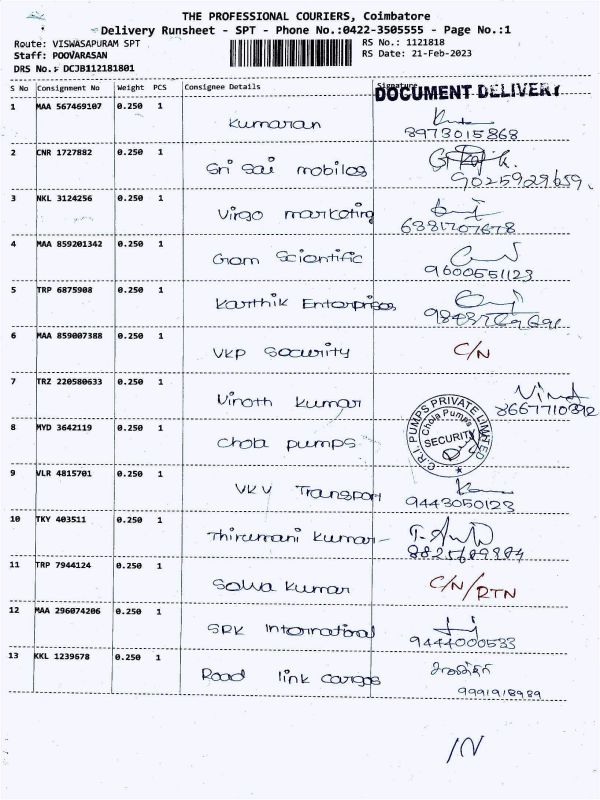 THE PROFESSIONAL COURIERS, Coimbatore
Delivery Runsheet - SPT - Phone No.:0422-3505555 - Page No.:1
Route: VISWASAPURAM SPT
RS No.: 1121818
Staff: POOVARASAN
RS Date: 21-Feb-2023
DRS No.: DCJB112181801
S No Consignment No Weight PCS Consignee Details Signature
DOCUMENT DELIVERY
1 MAA 567469107 0.250 1 Kumaran
8973015868
2 CNR 1727882 0.250 1 Sri Sai mobiles
9025929659.
3 NKL 3124256 0.250 1 Virgo marketing
6381707678
4 MAA 859201342 0.250 1 Gram Scientific
9600551123
5 TRP 6875908 0.250 1 Karthik Enterprises
6 MAA 859007388 0.250 1 VKP Security C/N
7 TRZ 220580633 0.250 1 Vinoth Kumar
8667710392
8 MYD 3642119 0.250 1 Chola pumps
C.R.I. PUMPS PRIVATE LIMITED
Chola Pumps
SECURITY
9 VLR 4815701 0.250 1 VKV Transport
9443050123
10 TKY 403511 0.250 1 Thirumani Kumar-
11 TRP 7944124 0.250 1 Kumar C/N/RTN
12 MAA 296074206 0.250 1 SRK International
9444000533
13 KKL 1239678 0.250 1 Road link cargos
9991918989